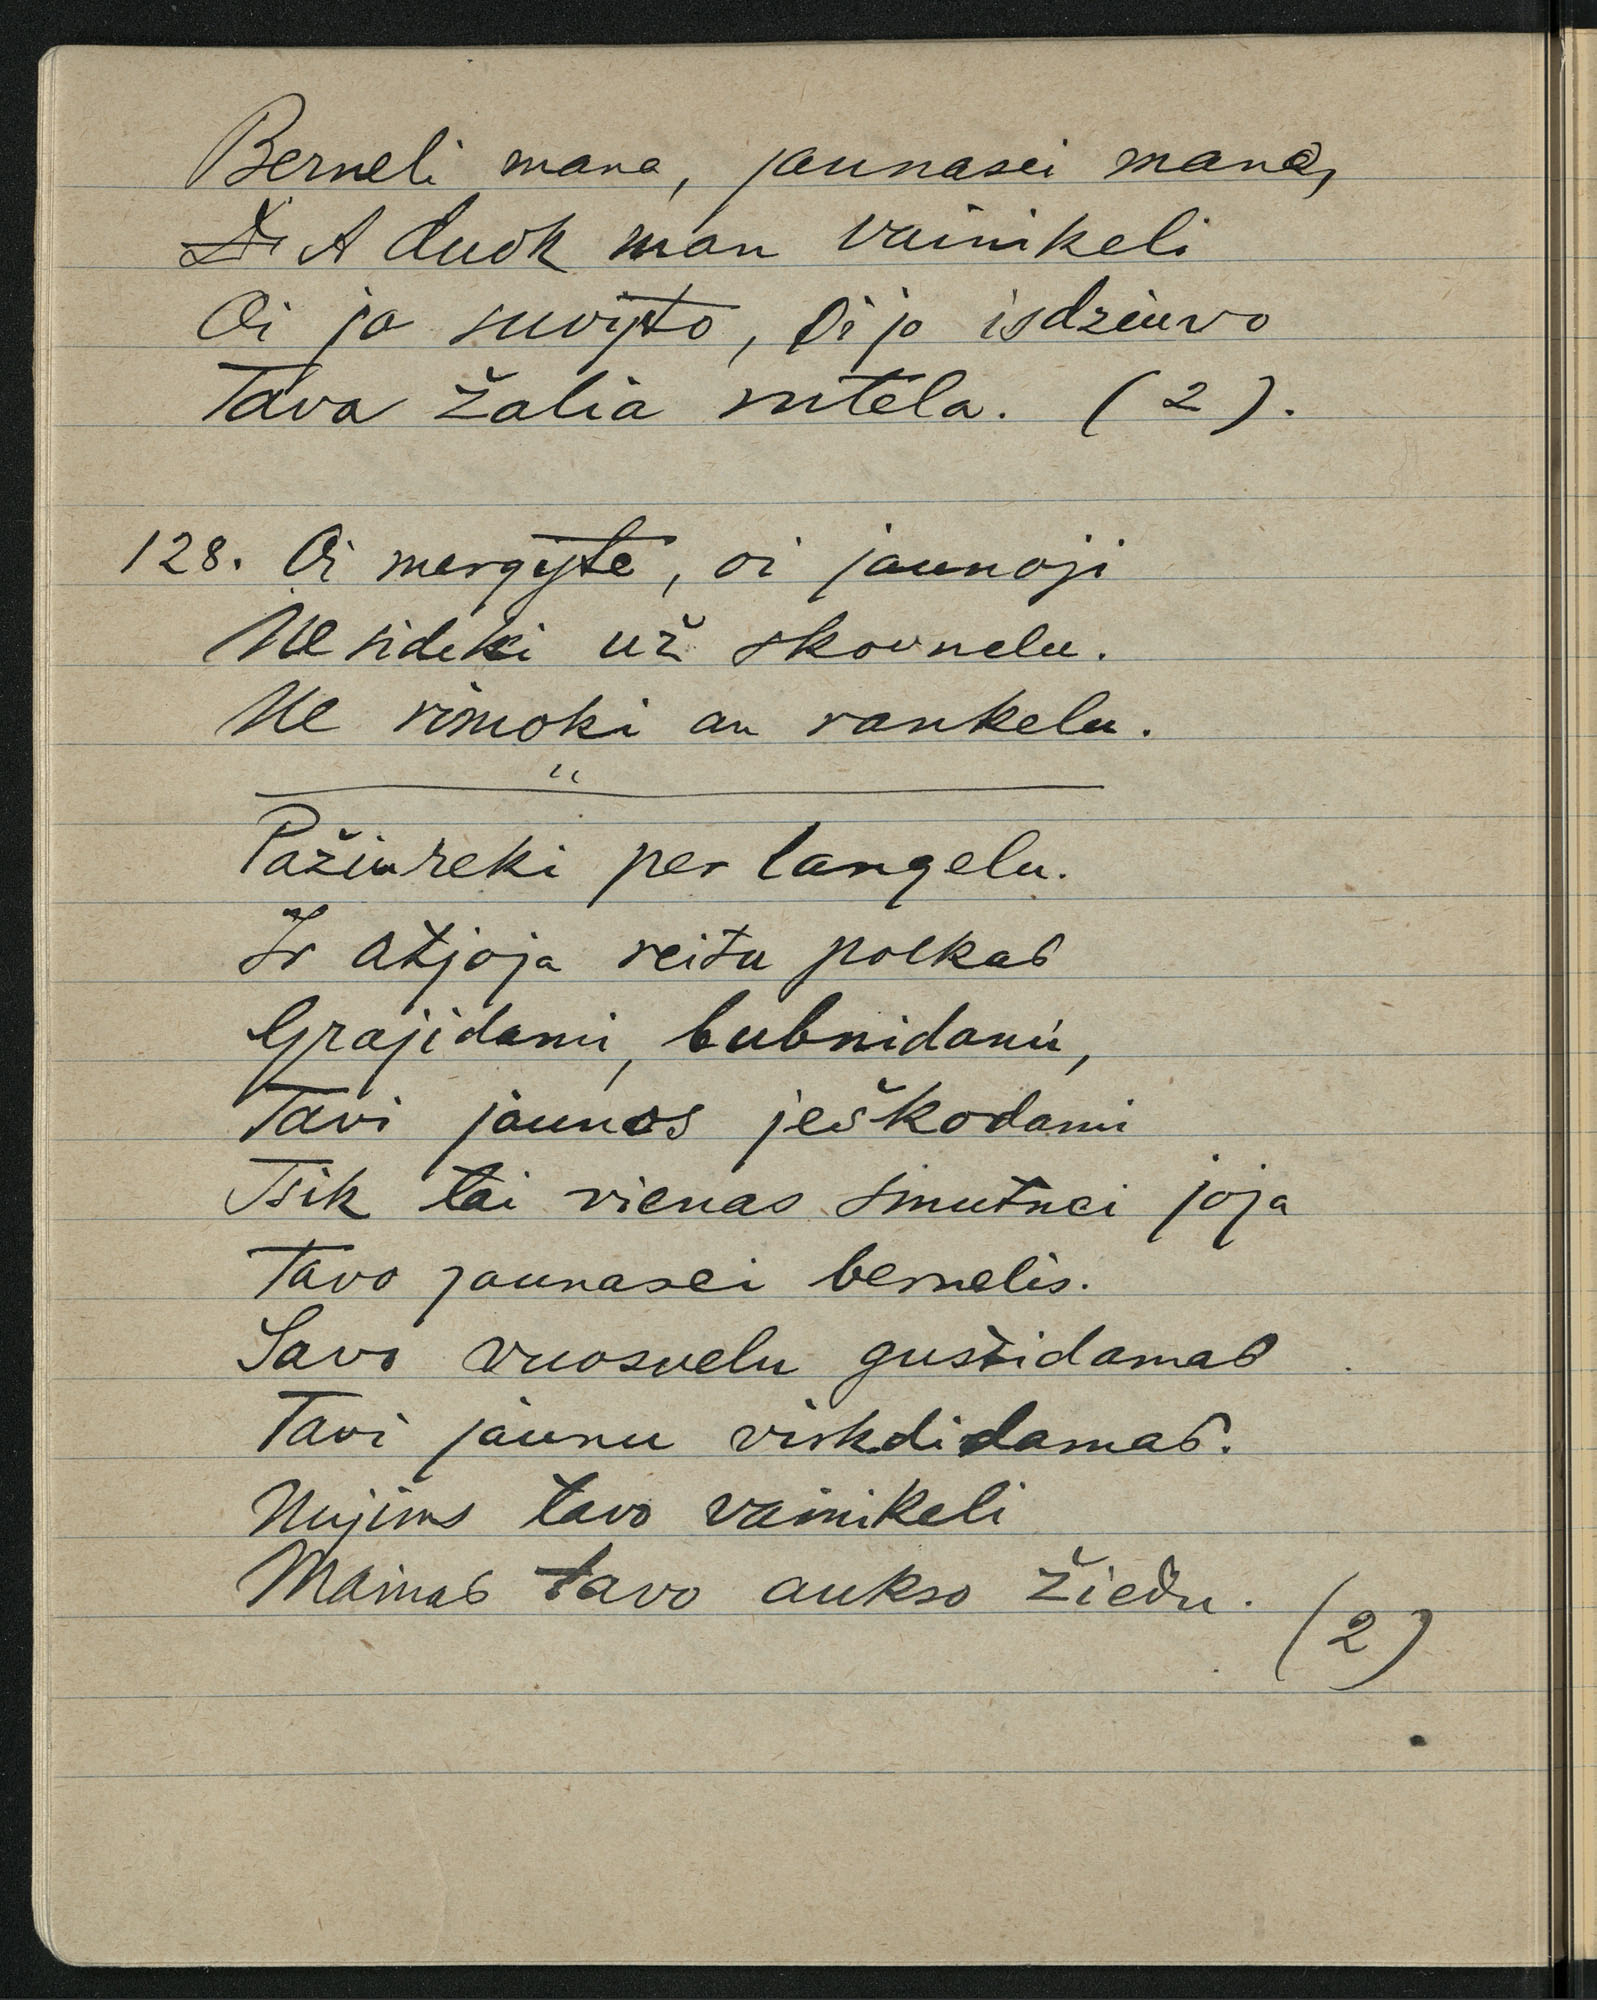 Berneli mana, jaunasei mana,
A duok man vainikeli
Oi jo suvyto, Oi jo isdziuvo
Tava žalia rutela. (2).
128. Oi mergyte, oi jaunoji
Ne sideki už skomnelu.
Ne rimoki an rankelu.
"
Pažiureki per langelu.
Ir atjoja reitu polkas
Grajidami, bubnidami,
Tavi jaunos ješkodami
Tsik tai vienas smutnei joja
Tavo jaunasei bernelis.
Savo vuosuelu gustidamas
Tavi jaunu virkdidamas.
Nujims tavo vainikeli
Mainas tavo aukso žiedu. (2)